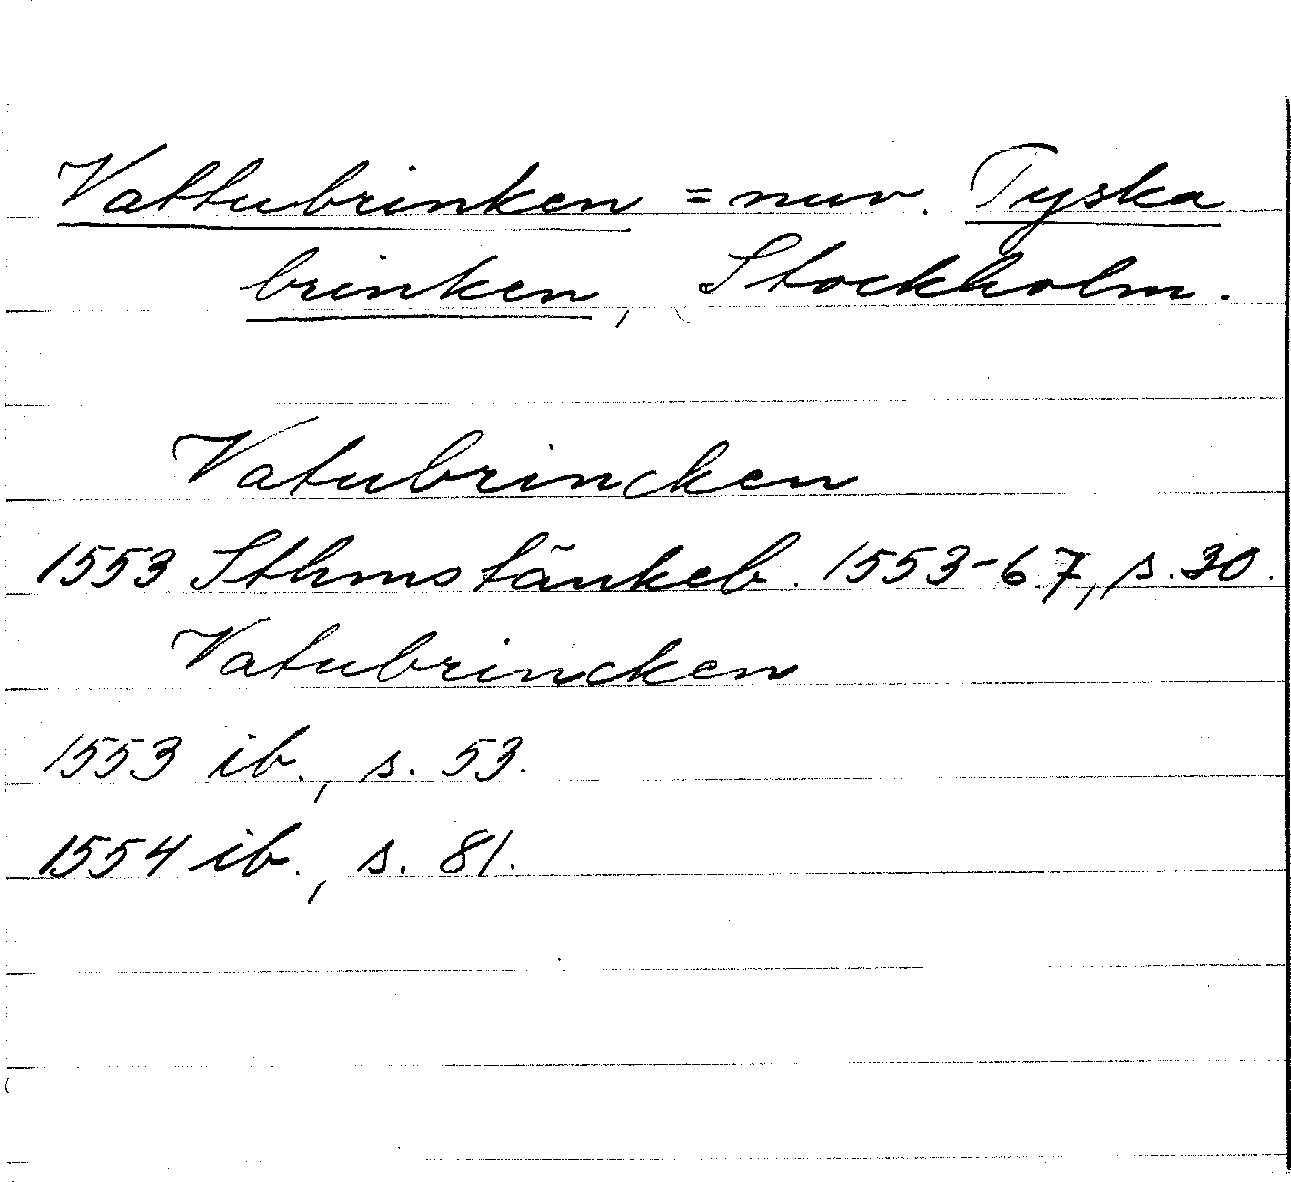 Vattubrinken = nuv. Tyska
brinken, Stockholm.
Vatubrincken
1553 Sthms tänkeb. 1553-67, s. 30.
Vatubrincken
1553 ib., s. 53.
1554 ib., s. 81.